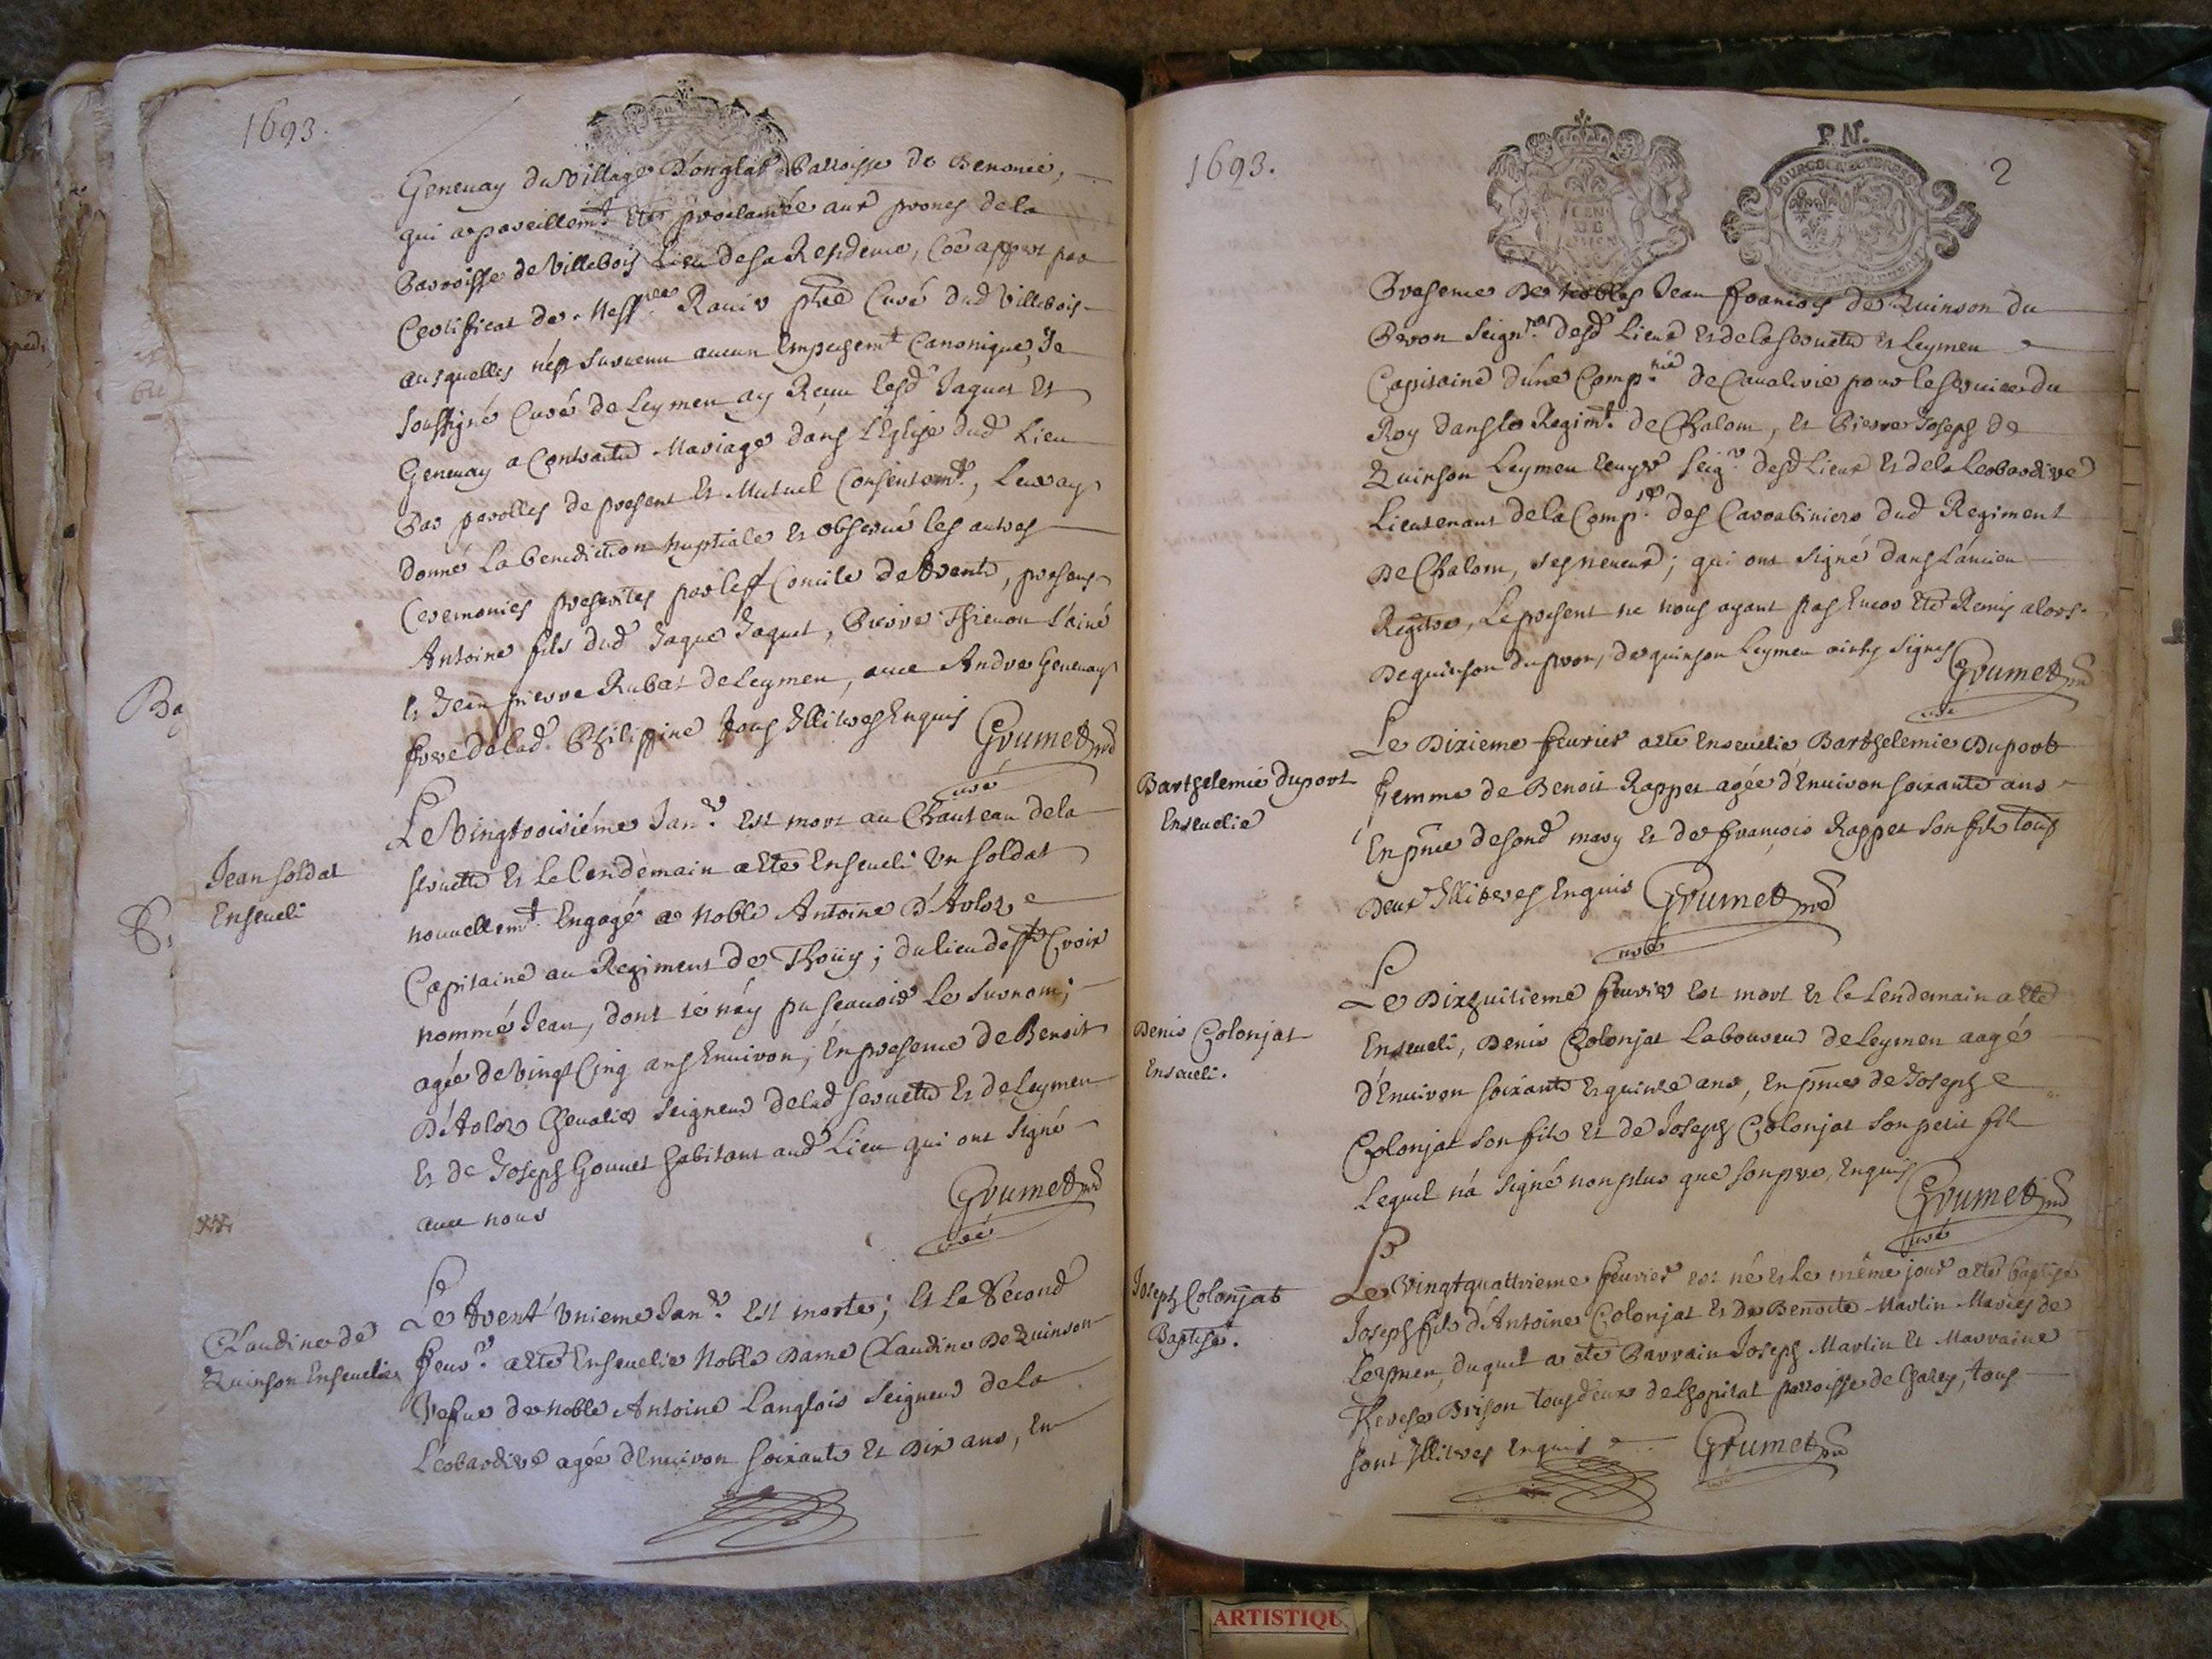 1693.
Geneuay du Village D'onglas Parroisse de Benonce,
qui a pareillemt. Eté proclamée aux prones de la
Parroisse de Villebois Lieu de sa Residence, Coe appert par
Certificat de Messre. Rauix ptre Curé dud Villebois
ausquelles n'est survenu aucun Empechemt. Canonique, Je
soussigné Curé de Leymen ay Reçu lesd Jaquet Et
Geneuay a Contracter Mariage dans L'Eglise dud Lieu
Par parolles de present Et Mutuel Consentemt., Leur ay
donné La benediction Nuptiale Et observé les autres
Ceremonies prescrites par le St Concile de Trente, presens
Antoine fils dud Jaque Jaquet, Pierre Thieuon l'ainé
Et Jean pierre Rubat de Leymen, avec André Geneuay
frere de lad. Philippine tous Illitres Enquis Grumet
curé
Jean soldat
Enseueli
Le Vingtroisiéme Janr. Est mort au Chauteau de la
seruette Et le Lendemain a Eté Enseueli Un soldat
nouuellemt. Engagé a Noble Antoine D'Aoloz
Capitaine au Regiment de Thoüy; du lieu de ste Croix
nommé Jean, dont ie n'ay pu scauoir Le surnom;
agée de Vingt Cinq ans Enuiron; En presence de Benoit
D'Aoloz Cheualier Seigneur de lad seruette Et de Leymen
Et de Joseph Gonnet habitant aud Lieu qui ont signé
auec nous
Grumet
curé
Claudine de
Quinson Enseuelie
Le trent'Unieme Janr. Est morte; Et le Second
feur. a Eté Enseuelie Noble Dame Claudine De Quinson
Vefue de Noble Antoine Langlois Seigneur de la
Léobardiere agée d'Enuiron soixante Et Dix ans, En
1693.
P.N.
2
Presence De Nobles Jean francois de Quinson du
Peron Seignr. desd Lieux Et de la seruette Et Leymen
Capitaine d'une Compnie. de Caualerie pour le seruice du
Roy dans le Regimt. de Chalom, Et Pierre Joseph de
Quinson Leymen Ecuyer Seigr. desd Lieux Et de la Leobardiere
Lieutenant de la Comp. des Carrabiniers dud Regiment
De Chalom, ses neueux; qui ont signé dans L'ancien
Regitre, Le present ne nous ayant pas Encor Eté Remis alors.
De quinson du peron, de quinson Leymen ainsy signes Grumet
curé
Barthelemie Duport
Enseuelie
Le Dixieme feurier a eté Enseuelie Barthelemie Duport
femme de Benoit Rappet agée d'Enuiron soixante ans
En pnce de sond mary Et de francois Rappet son fils tous
Deux Illitres Enquis Grumet
curé
Denis Colonjat
Enseueli.
Le Dixhuitieme feurier Est mort Et le Lendemain a Eté
Enseueli, Denis Colonjat Laboureur de Leymen aagé
d'Enuiron soixante Et quinze ans, En pnce de Joseph
Colonjat son fils Et de Joseph Colonjat son petit fils
Lequel n'a signé non plus que son pere, Enquis
Grumet
curé
Joseph Colonjat
Baptisé.
Le Vingtquattrieme feurier est né Et le même jour a Eté baptisé
Joseph fils d'Antoine Colonjat Et de Benoite Martin Maries de
Leymen, duquel a eté Parrain Joseph Martin Et Marraine
Terese Brison tous deux de l'hopital parroisse de Chaley, tous
sont Illitres Enquis Grumet
curé
ARTISTIQU